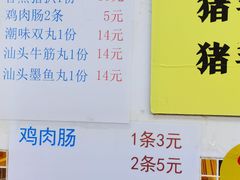 鸡肉肠2条 5元
潮味双丸1份 14元
汕头牛筋丸1份 14元
汕头墨鱼丸1份 14元
猪
猪
鸡肉肠 1条3元
2条5元